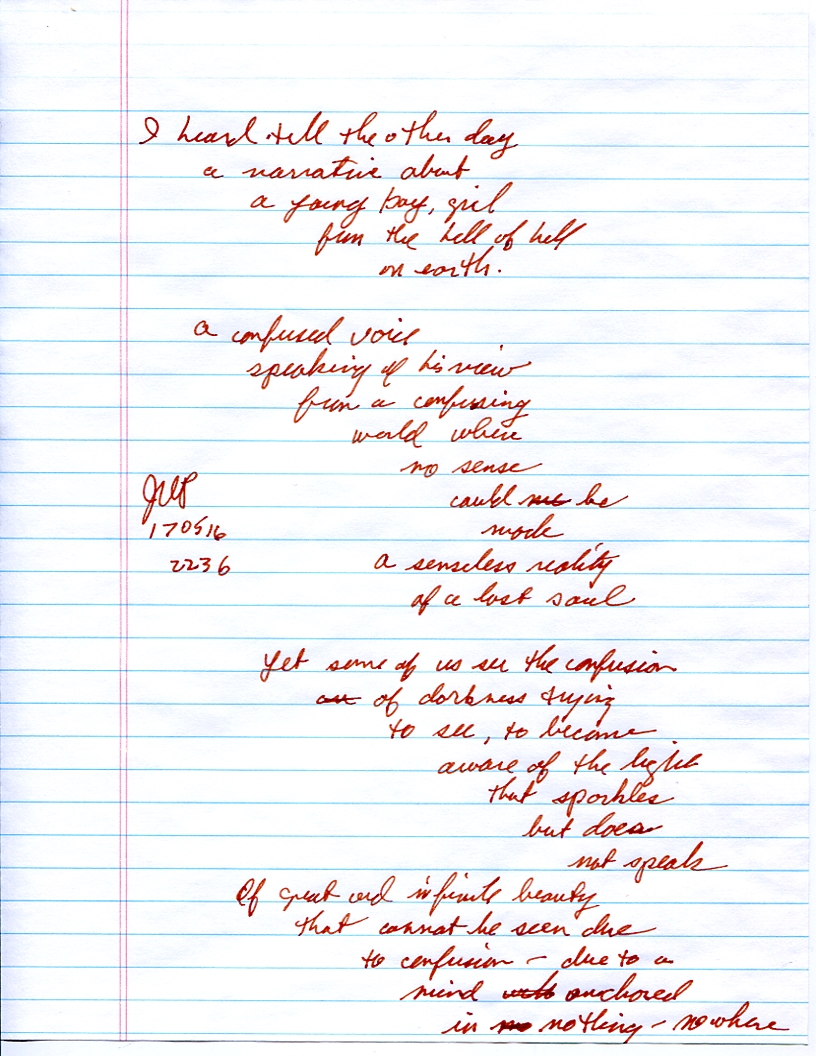 I heard tell the other day
a narrative about
a young boy, girl
from the hell of hell
on earth.
a confused voice
speaking of his view
from a confusing
world where
no sense
could be
made
a senseless reality
of a lost soul
JWP
170516
2236
Yet some of us see the confusion
of darkness trying
to see, to become
aware of the light
that sparkles
but does
not speak
Of great and infinite beauty
that cannot be seen due
to confusion – due to a
mind anchored
in nothing – nowhere